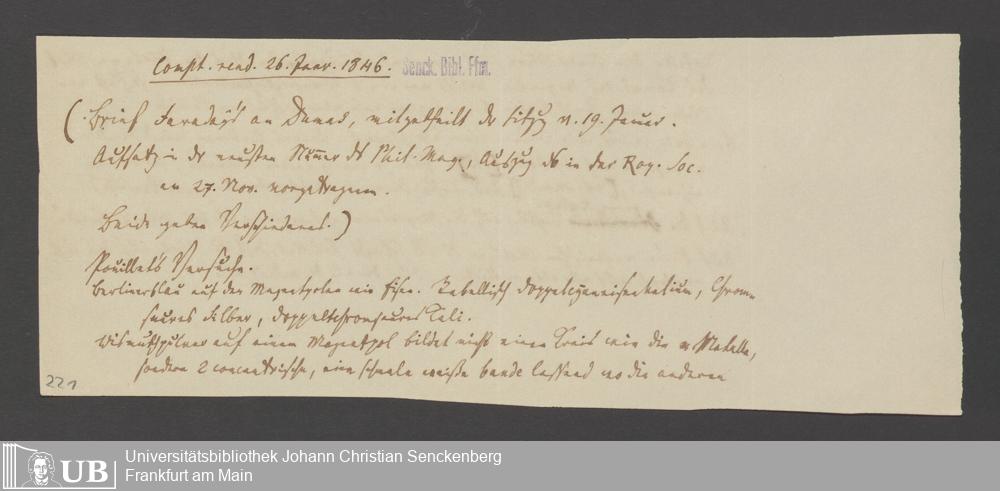 Compt. rend. 26. Janr. 1846.
Senck. Bibl. Ffm.
(Brief Faraday's an Dumas, mitgetheilt der Sitzg v. 19. Januar.
Aufsatz in der neusten Nummer ds Phil. Mag., Auszug in der Roy. Soc.
am 27. Nov. vorgetragenen.
Beide geben Verschiedenes.)
Pouillet's Versuche.
Berlinerblau auf den Magnetpolen wie Eisen. doppelcyaneisenkalium, Chrom-
saures Silber, doppeltchromsaures Cali.
Wismuthpulver auf einem Magnetpol bildet nicht einen Kreis wie die Metalle,
sondern 2 concentrische, eine schmale weiße bande lassend wo die anderen
221
UB
Universitätsbibliothek Johann Christian Senckenberg
Frankfurt am Main